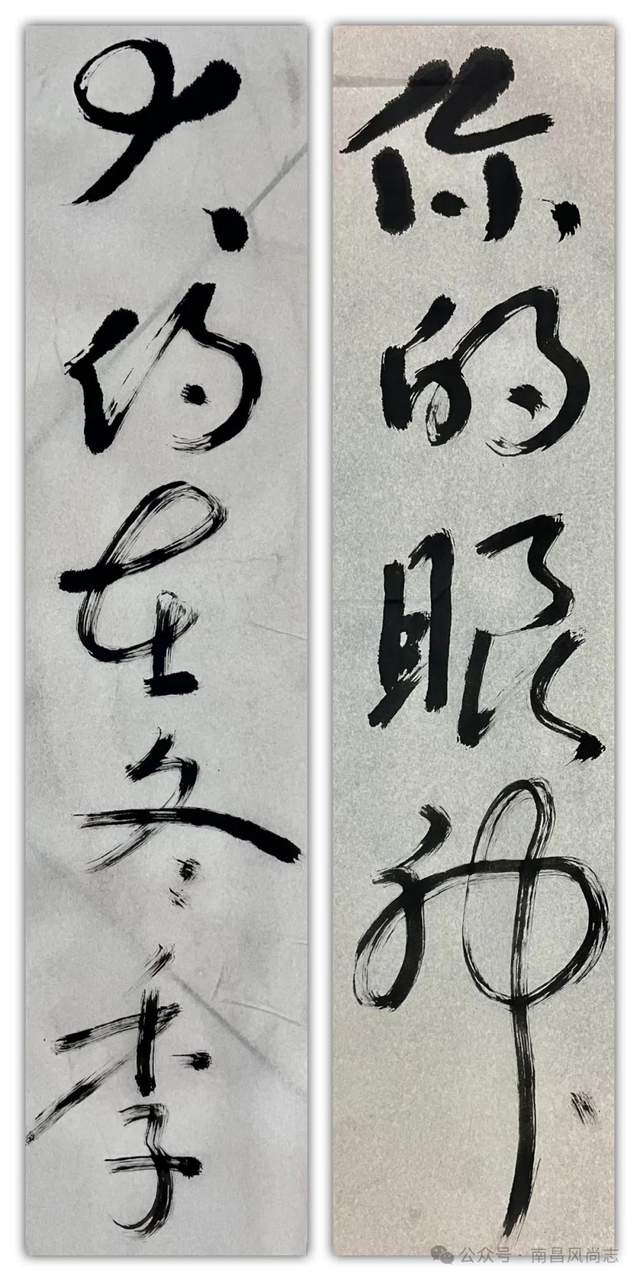 你的眼神
大约在冬季
公众号 · 南昌风尚志